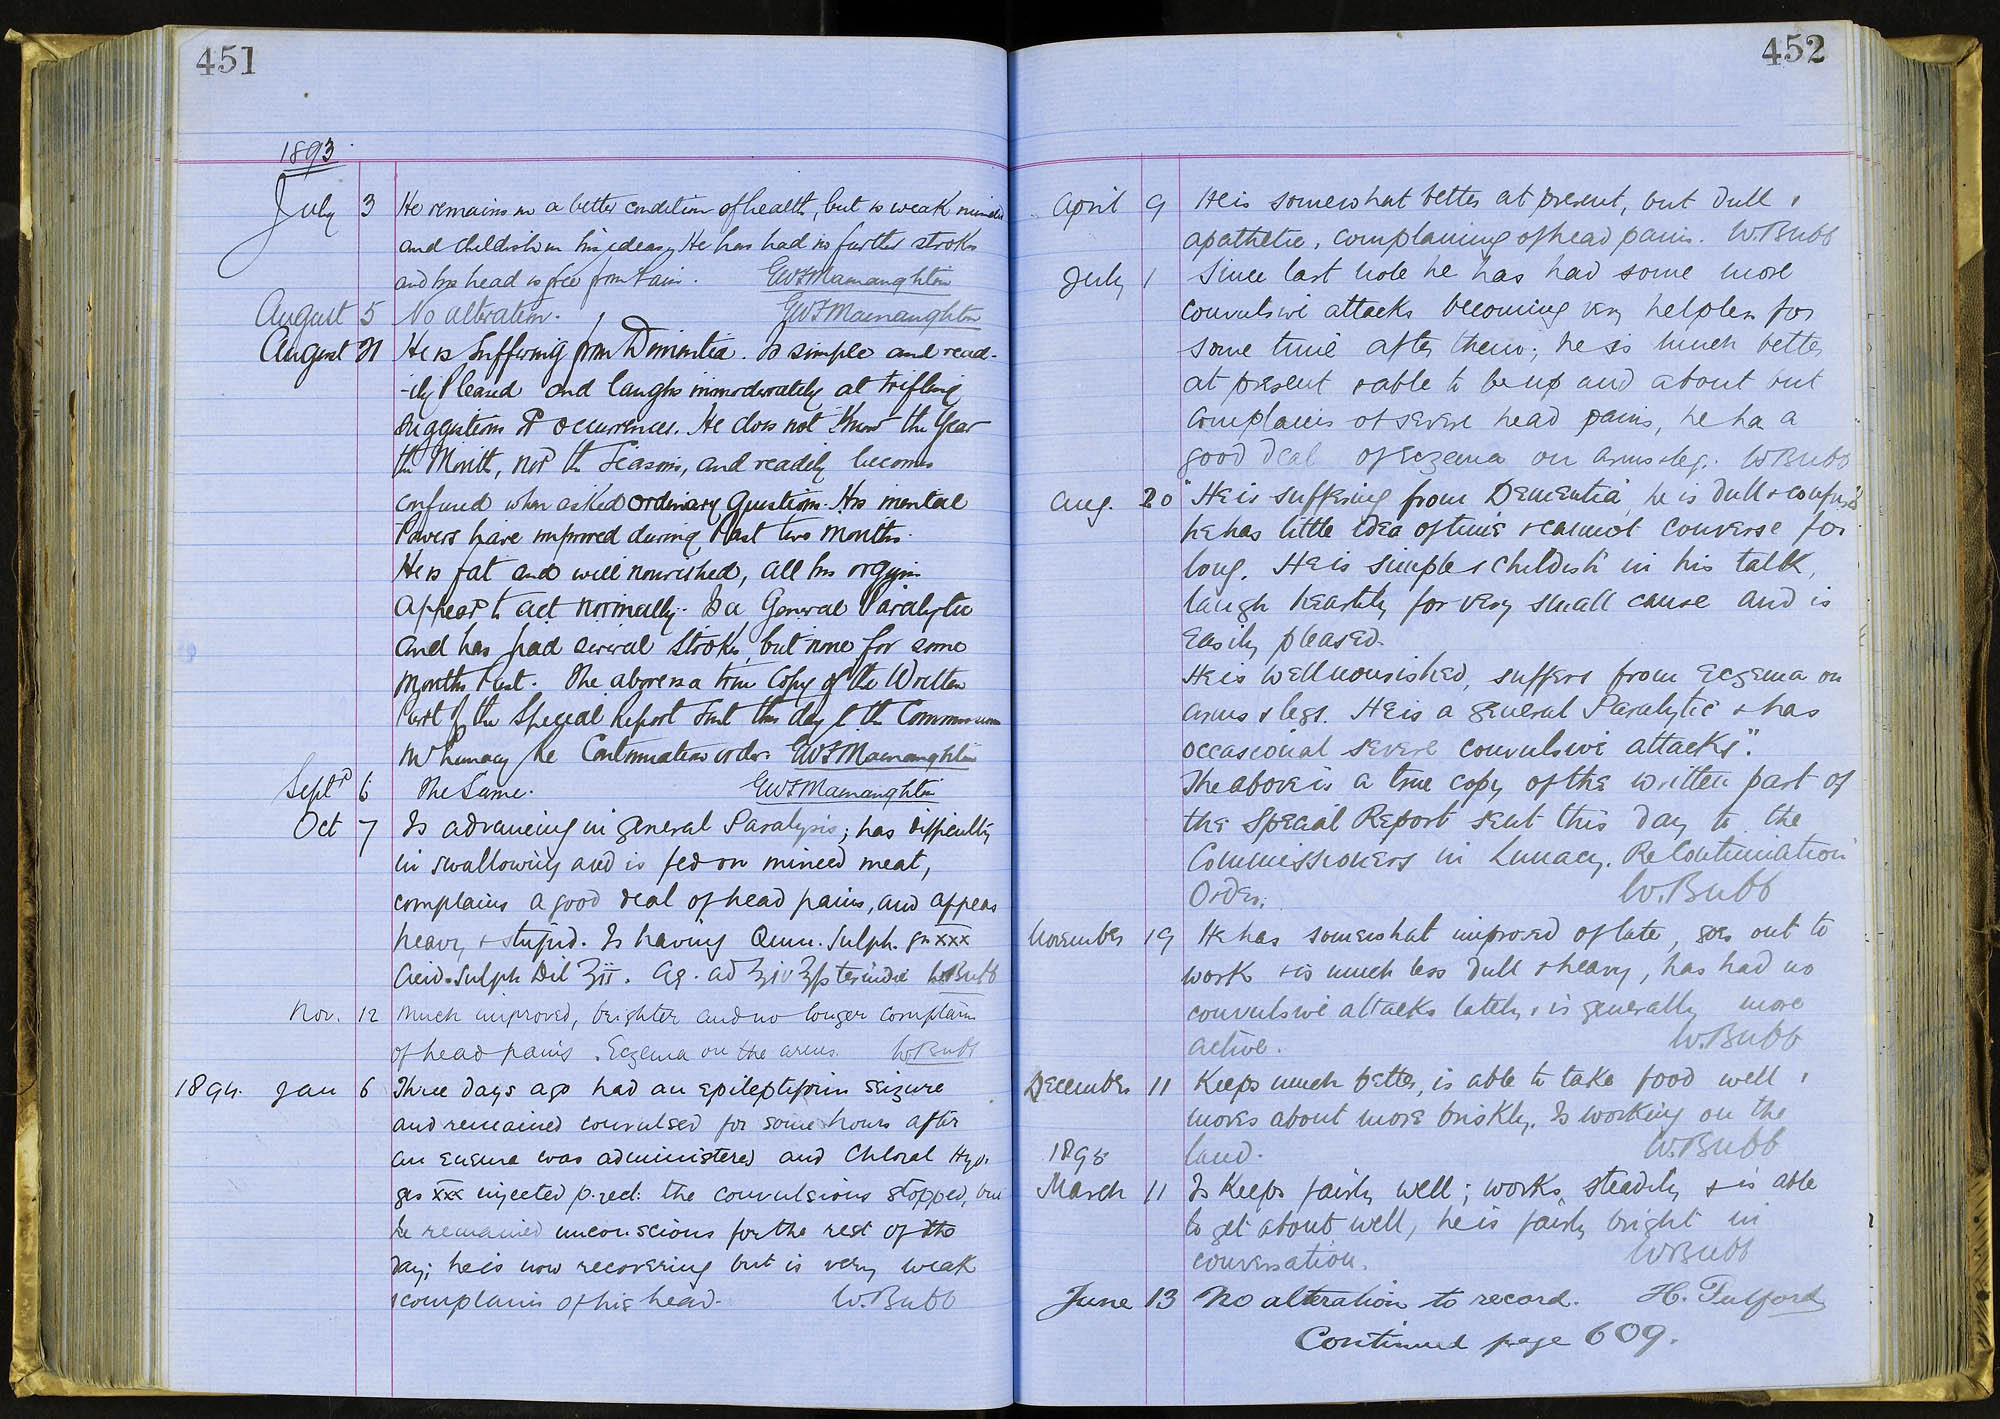 451
1893.
July 3 He remains in a better condition of health, but is weak minded
and childish in his ideas, He has had no further strokes
and his head is free from pain. GWFMacnaughton
August 5 No alteration. GWFMacnaughton
August 21 He is Suffering from Dementia. Is simple and read-
-ily Pleased and laughs immoderately at trifling
suggestions or occurrences. He does not Know the Year
the Month, nor the Seasons, and readily becomes
confused when asked ordinary Questions. His mental
Powers have improved during Past two months.
He is fat and well nourished, all his organs
appear to act normally. Is a General Paralytic
and has had several Strokes but none for some
Months Past. The above is a true Copy of the Written
Part of the Special Report Sent this day to the Commissioners
in Lunacy Re Continuation order. GWFMacnaughton
Septr 6 The Same. GWFMacnaughton
Oct 7 Is advancing in general Paralysis; has difficulty
in swallowing and is fed on minced meat,
complains a good deal of head pains, and appears
heavy & stupid. Is having Quin. Sulph. grs xxx
Acid. Sulph Dil ʒii. Aq. ad ℥iv ℥ss ter indie W.Bubb
Nov. 12 Much improved, brighter and no longer complains
of head pains. Eczema on the arms. W.Bubb
1894. Jan 6 Three days ago had an epileptiform seizure
and remained convulsed for some hours after
an enema was administered and Chloral Hyd.
grs xxx injected p. rect: the convulsions stopped, but
he remained unconscious for the rest of the
day; he is now recovering but is very weak
& complains of his head. W.Bubb
452
April 9 He is somewhat better at present, but dull &
apathetic, complaining of head pains. W.Bubb
July 1 Since last note he has had some more
convulsive attacks becoming very helpless for
some time after them; he is much better
at present & able to be up and about but
complains of severe head pains, he ha a
good deal of eczema on arms & leg. W.Bubb
Aug. 20 "He is suffering from Dementia, he is dull & confused
he has little idea of time & cannot converse for
long. He is simple & childish in his talk,
laugh heartily for very small cause and is
easily pleased.
He is well nourished, suffers from eczema on
arms & legs. He is a general Paralytic & has
occasional severe convulsive attacks".
The above is a true copy of the written part of
the Special Report sent this day to the
Commissioners in Lunacy. Re Continuation
Order. W.Bubb
November 19 He has somewhat improved of late, goes out to
work & is much less dull & heavy, has had no
convulsive attacks lately & is generally more
active. W.Bubb
December 11 Keeps much better, is able to take food well &
moves about more briskly. Is working on the
land. W.Bubb
1895
March 11 Is Keeps fairly well; works steadily & is able
to get about well, he is fairly bright in
conversation. W.Bubb
June 13 No alteration to record. H. Fulford
Continued page 609.